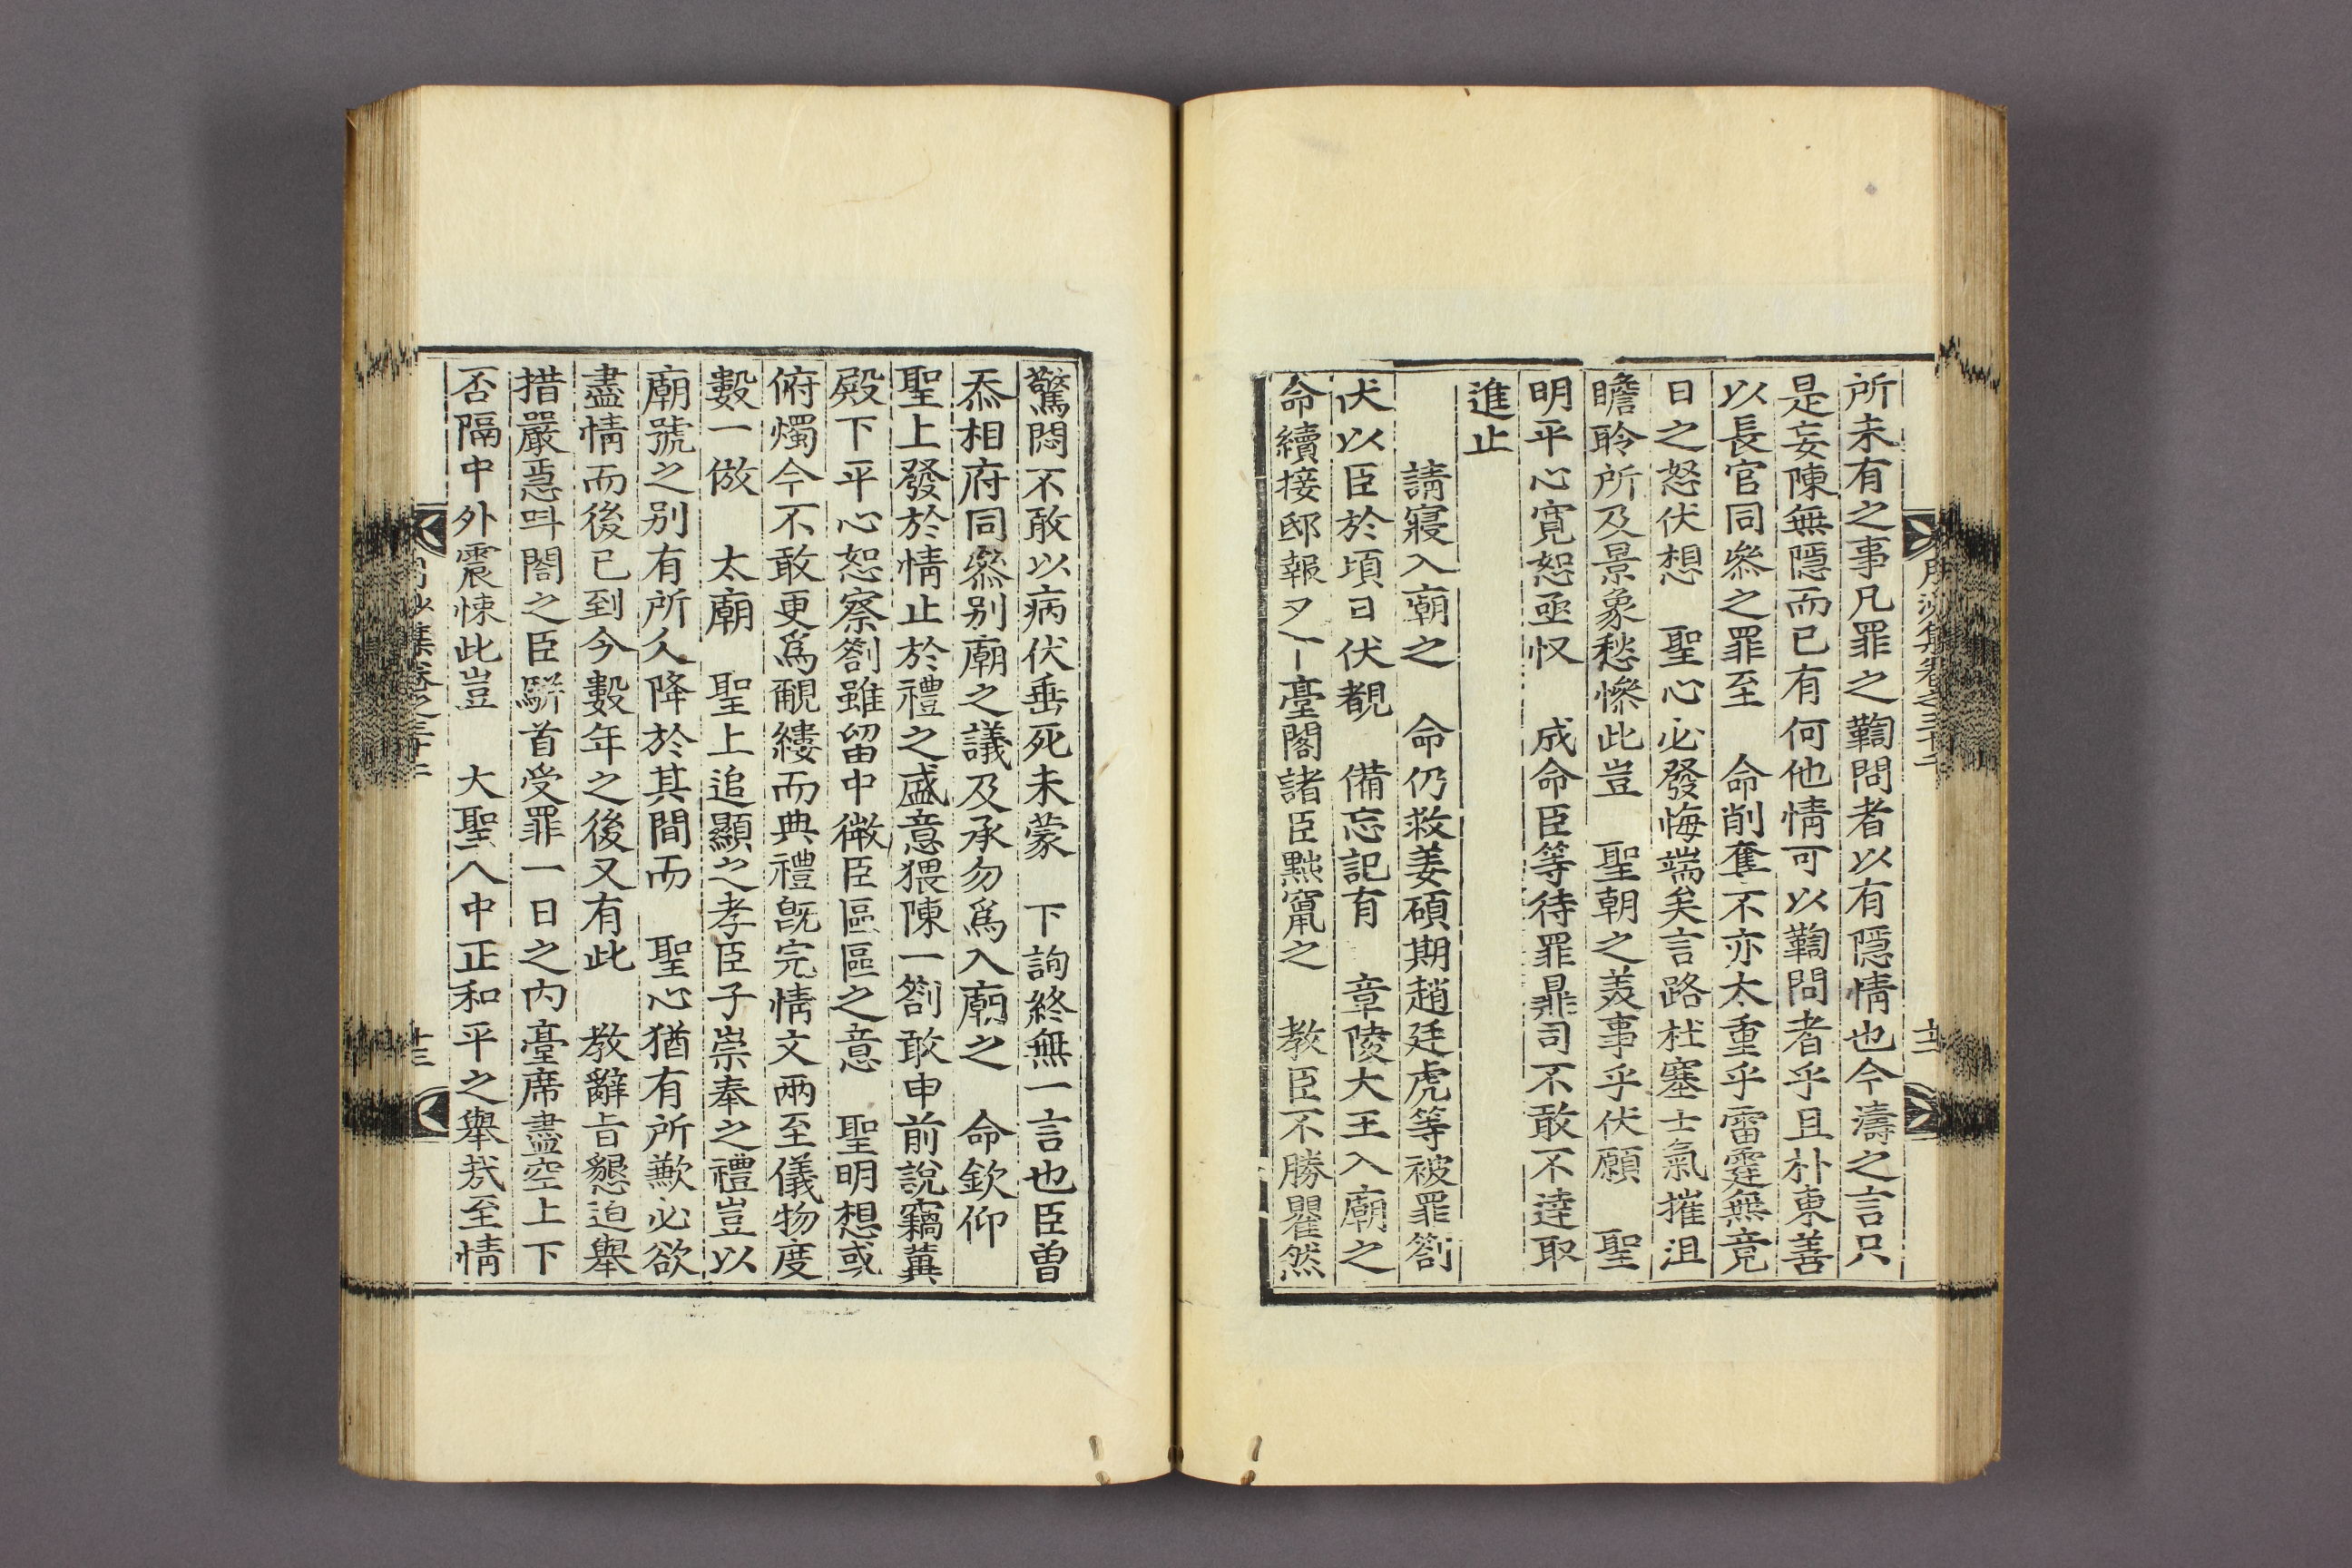 所未有之事凡罪之鞫問者以有隱情也今濤之言只
是妄陳無隱而已有何他情可以鞫問者乎且朴東善
以長官同叅之罪至 命削奪不亦太重乎雷霆無竟
日之怒伏想 聖心必發悔端矣言路杜塞士氣摧沮
瞻聆所及景象愁慘此豈 聖朝之美事乎伏願 聖
明平心寬恕亟収 成命臣等待罪鼎司不敢不達取
進止
請寢入廟之 命仍救姜碩期趙廷虎等被罪劄
伏以臣於頃日伏覩 備忘記有 章陵大王入廟之
命續接邸報夕下臺閣諸臣黜竄之 教臣不勝瞿然
驚悶不敢以病伏垂死未蒙 下詢終無一言也臣曽
忝相府同叅别廟之議及承勿爲入廟之 命欽仰
聖上發於情止於禮之盛意猥陳一劄敢申前說竊蕲
殿下平心恕察劄雖留中微臣區區之意 聖明想或
俯燭今不敢更爲覼縷而典禮旣完情文兩至儀物度
數一倣 太廟 聖上追顯之孝臣子崇奉之禮豈以
廟號之别有所久降於其間而 聖心猶有所歉必欲
盡情而後已到今數年之後又有此 教辭旨懇迫舉
措嚴惪呌閤之臣駢首受罪一日之內臺席盡空上下
否隔中外震悚此豈 大聖人中正和平之舉㢤至情
集卷之三十二
十二
集卷之三十二
十三